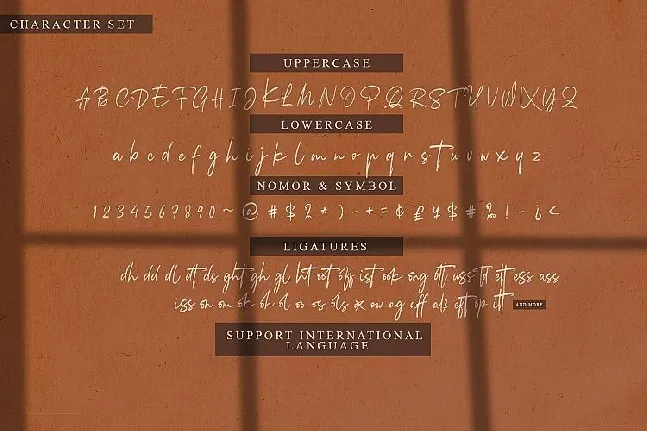 CHARACTER SET
UPPERCASE
A B C D E F G H I J K L M N O P Q R S T U V W X Y Z
LOWERCASE
a b c d e f g h i j k l m n o p q r s t u v w x y z
NOMOR & SYMBOL
1 2 3 4 5 6 7 8 9 0 ~ @ # $
LIGATURES
dl ds ght gh gl ht oot ist ook ong ott uss ett ess ass
iss on om oh ok ol oo os ow ag eff eft op itt AND MORE
SUPPORT INTERNATIONAL
LANGUAGE